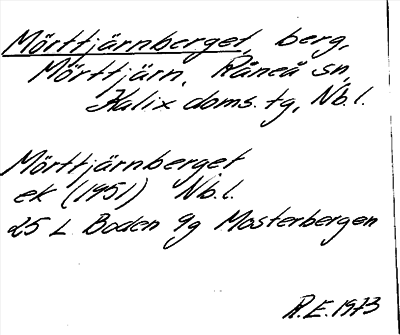 Mörttjärnberget, berg,
Mörttjärn, Råneå sn,
Kalix doms. tg, Nb.l.
Mörttjärnberget
ek (1951) Nb.l.
25 L Boden 9g Mosterbergen
R.E. 1973